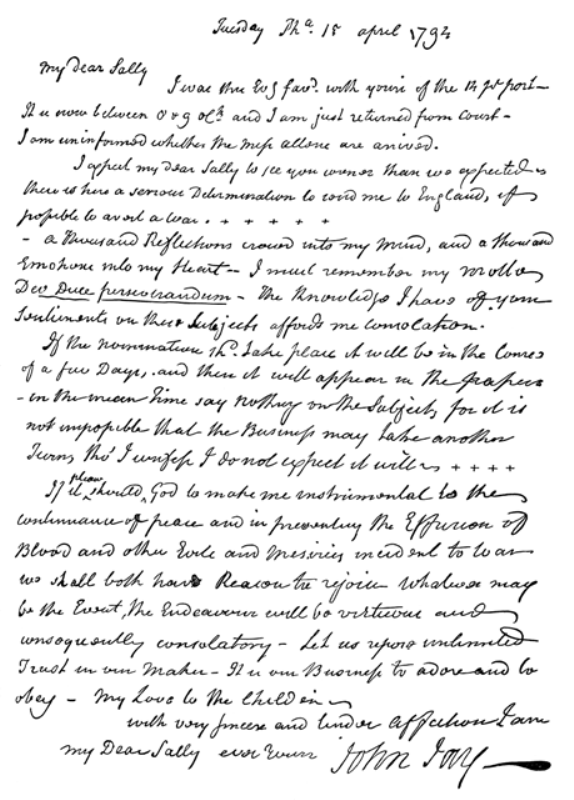 Tuesday Pha. 15 april 1794
My dear Sally
I was this Evg favd. with yours of the 14 pr post—
It is now between 8 & 9 oCk and I am just returned from Court—
I am uninformed whether the mess allone are arrived.
I expect my dear Sally to see you sooner than we expected
there is here a serious Determination to send me to England, if
possible to avert a War. + + + + + +
– a thousand Reflections crowd into my Mind, and a thousand
Emotions into my Heart— I must remember my motto
Deo Duce perseverandum – the Knowledge I have of your
Sentiments on these Subjects affords me consolation.
If the nomination shd. take place it will be in the Course
of a few Days, and then it will appear in the papers
– in the mean Time say nothing on the Subject, for it is
not impossible that the Business may take another
Turn, tho' I confess I do not expect it will + + + +
If it should please God to make me instrumental to the
continuance of peace and in preventing the Effusion of
Blood and other Evils and Miseries incident to War
we shall both have Reason to rejoice whatever may
be the Event, the Endeavour will be virtuous and
consequently consolatory – Let us repose unlimited
Trust in our Maker – It is our Business to adore and to
obey – My Love to the Children
with very sincere and tender affection I am
my Dear Sally ever Yours John Jay